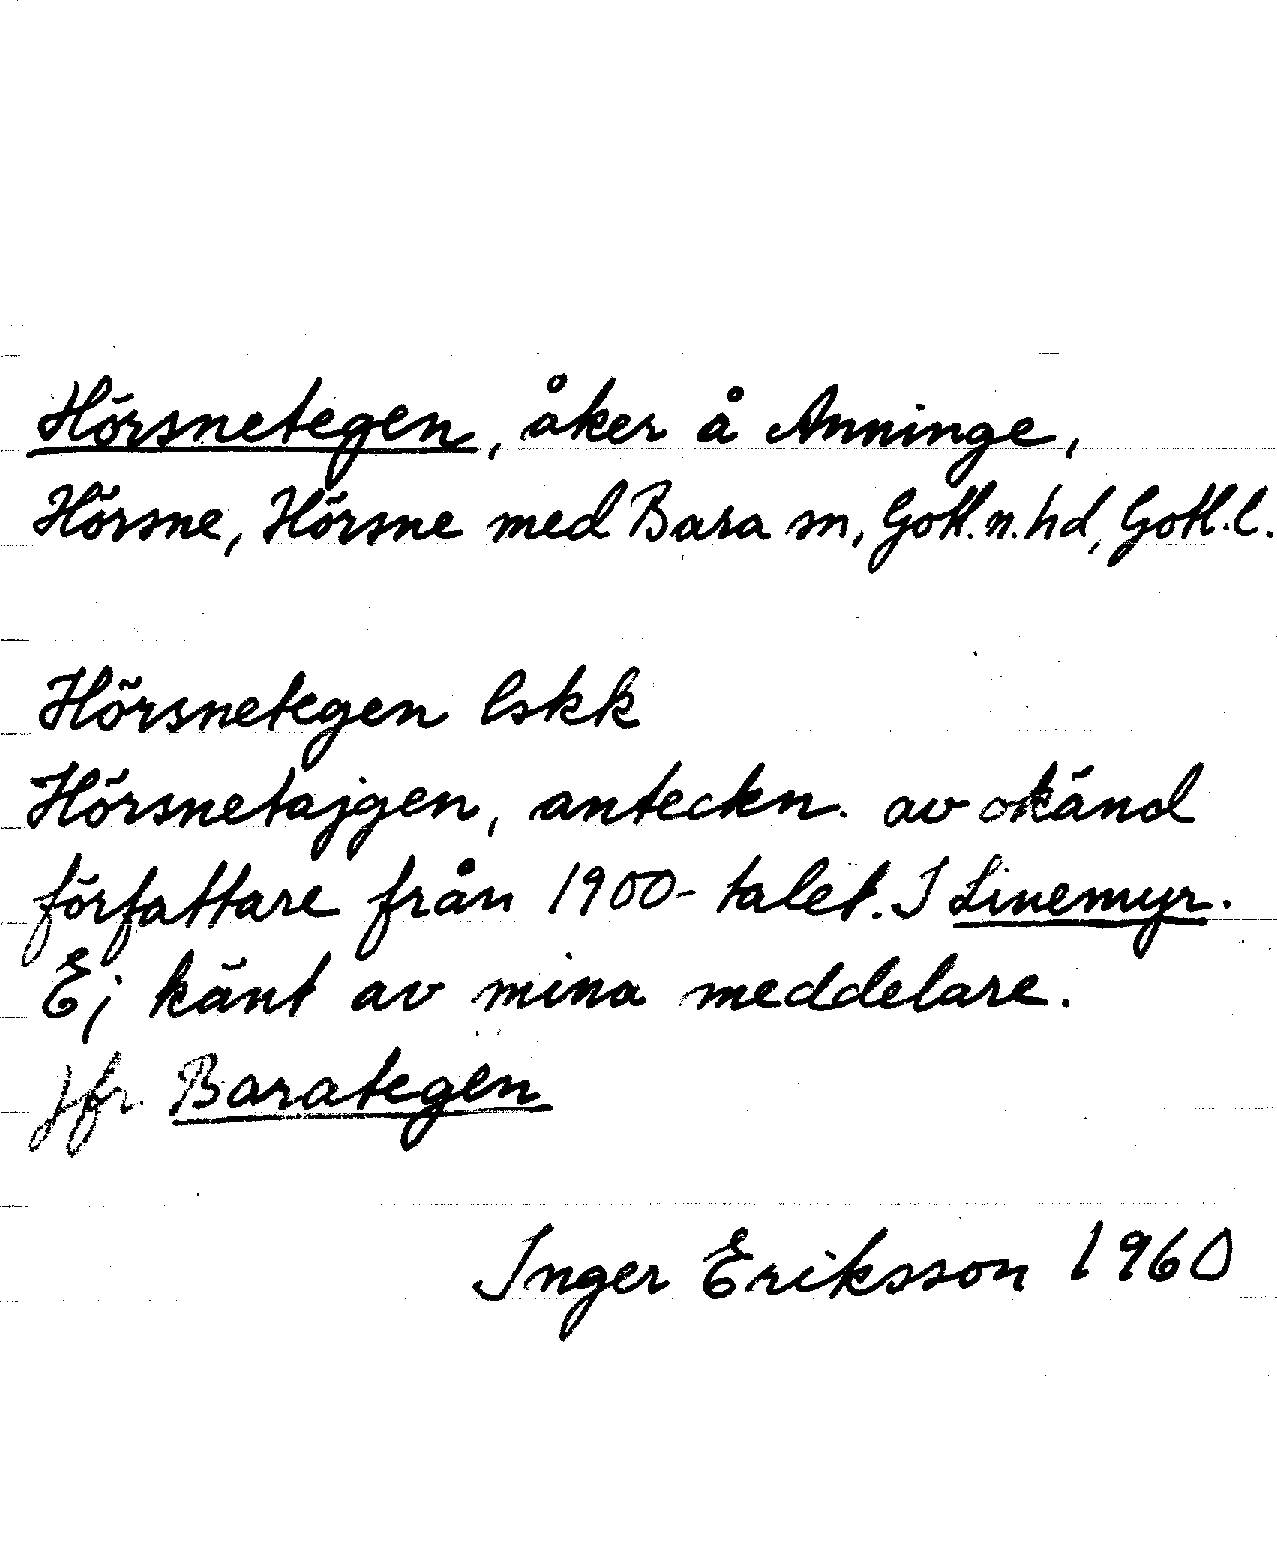 Hörsnetegen, åker å Anninge,
Hörsne, Hörsne med Bara sn, Gotl. n. hd, Gotl. l.
Hörsnetegen lskk
Hörsnetajgen, anteckn. av okänd
författare från 1900-talet. I Linemyr.
Ej känt av mina meddelare.
Jfr Barategen
Inger Eriksson 1960